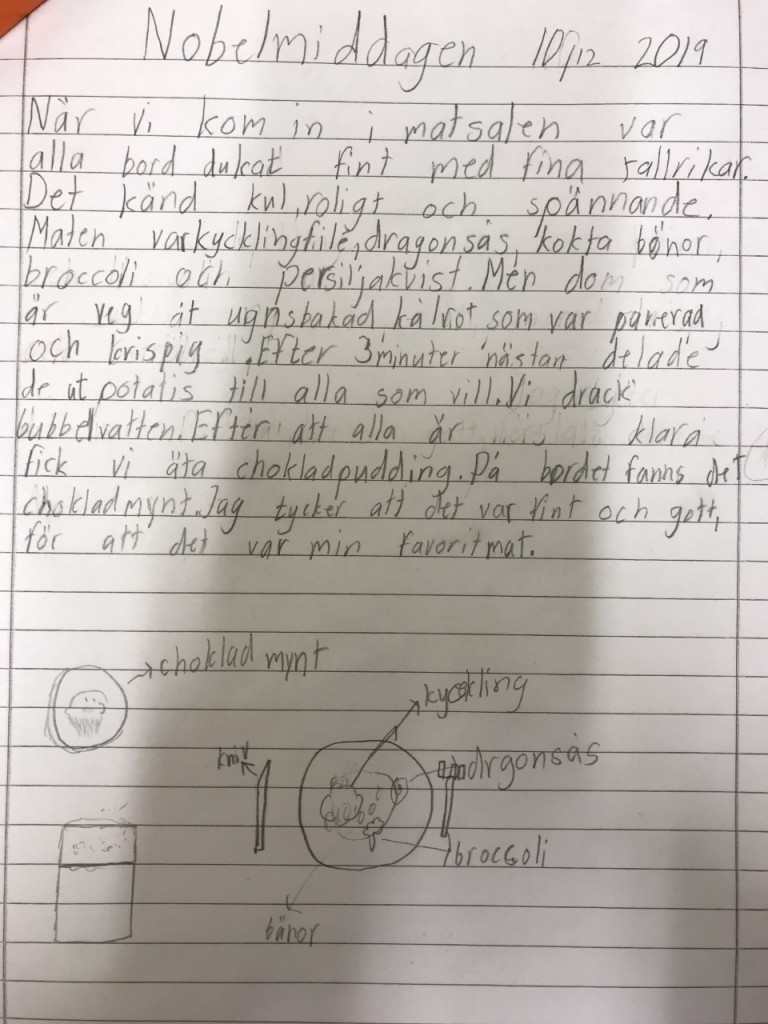 Nobelmiddagen 10/12 2019
När vi kom in i matsalen var
alla bord dukat fint med fina tallrikar.
Det känd kul, roligt och spännande.
Maten var kycklingfilé, dragonsås, kokta bönor,
broccoli och persiljakvist. Men dom som
är veg åt ugnsbakad kålrot som var panerad
och krispig. Efter 3 minuter nästan delade
de ut potatis till alla som vill. Vi drack
bubbelvatten. Efter att alla är klara
fick vi äta chokladpudding. På bordet fanns det
chokladmynt. Jag tycker att det var fint och gott,
för att det var min favoritmat.
choklad mynt
kyckling
kniv
drgonsås
broccoli
bänor